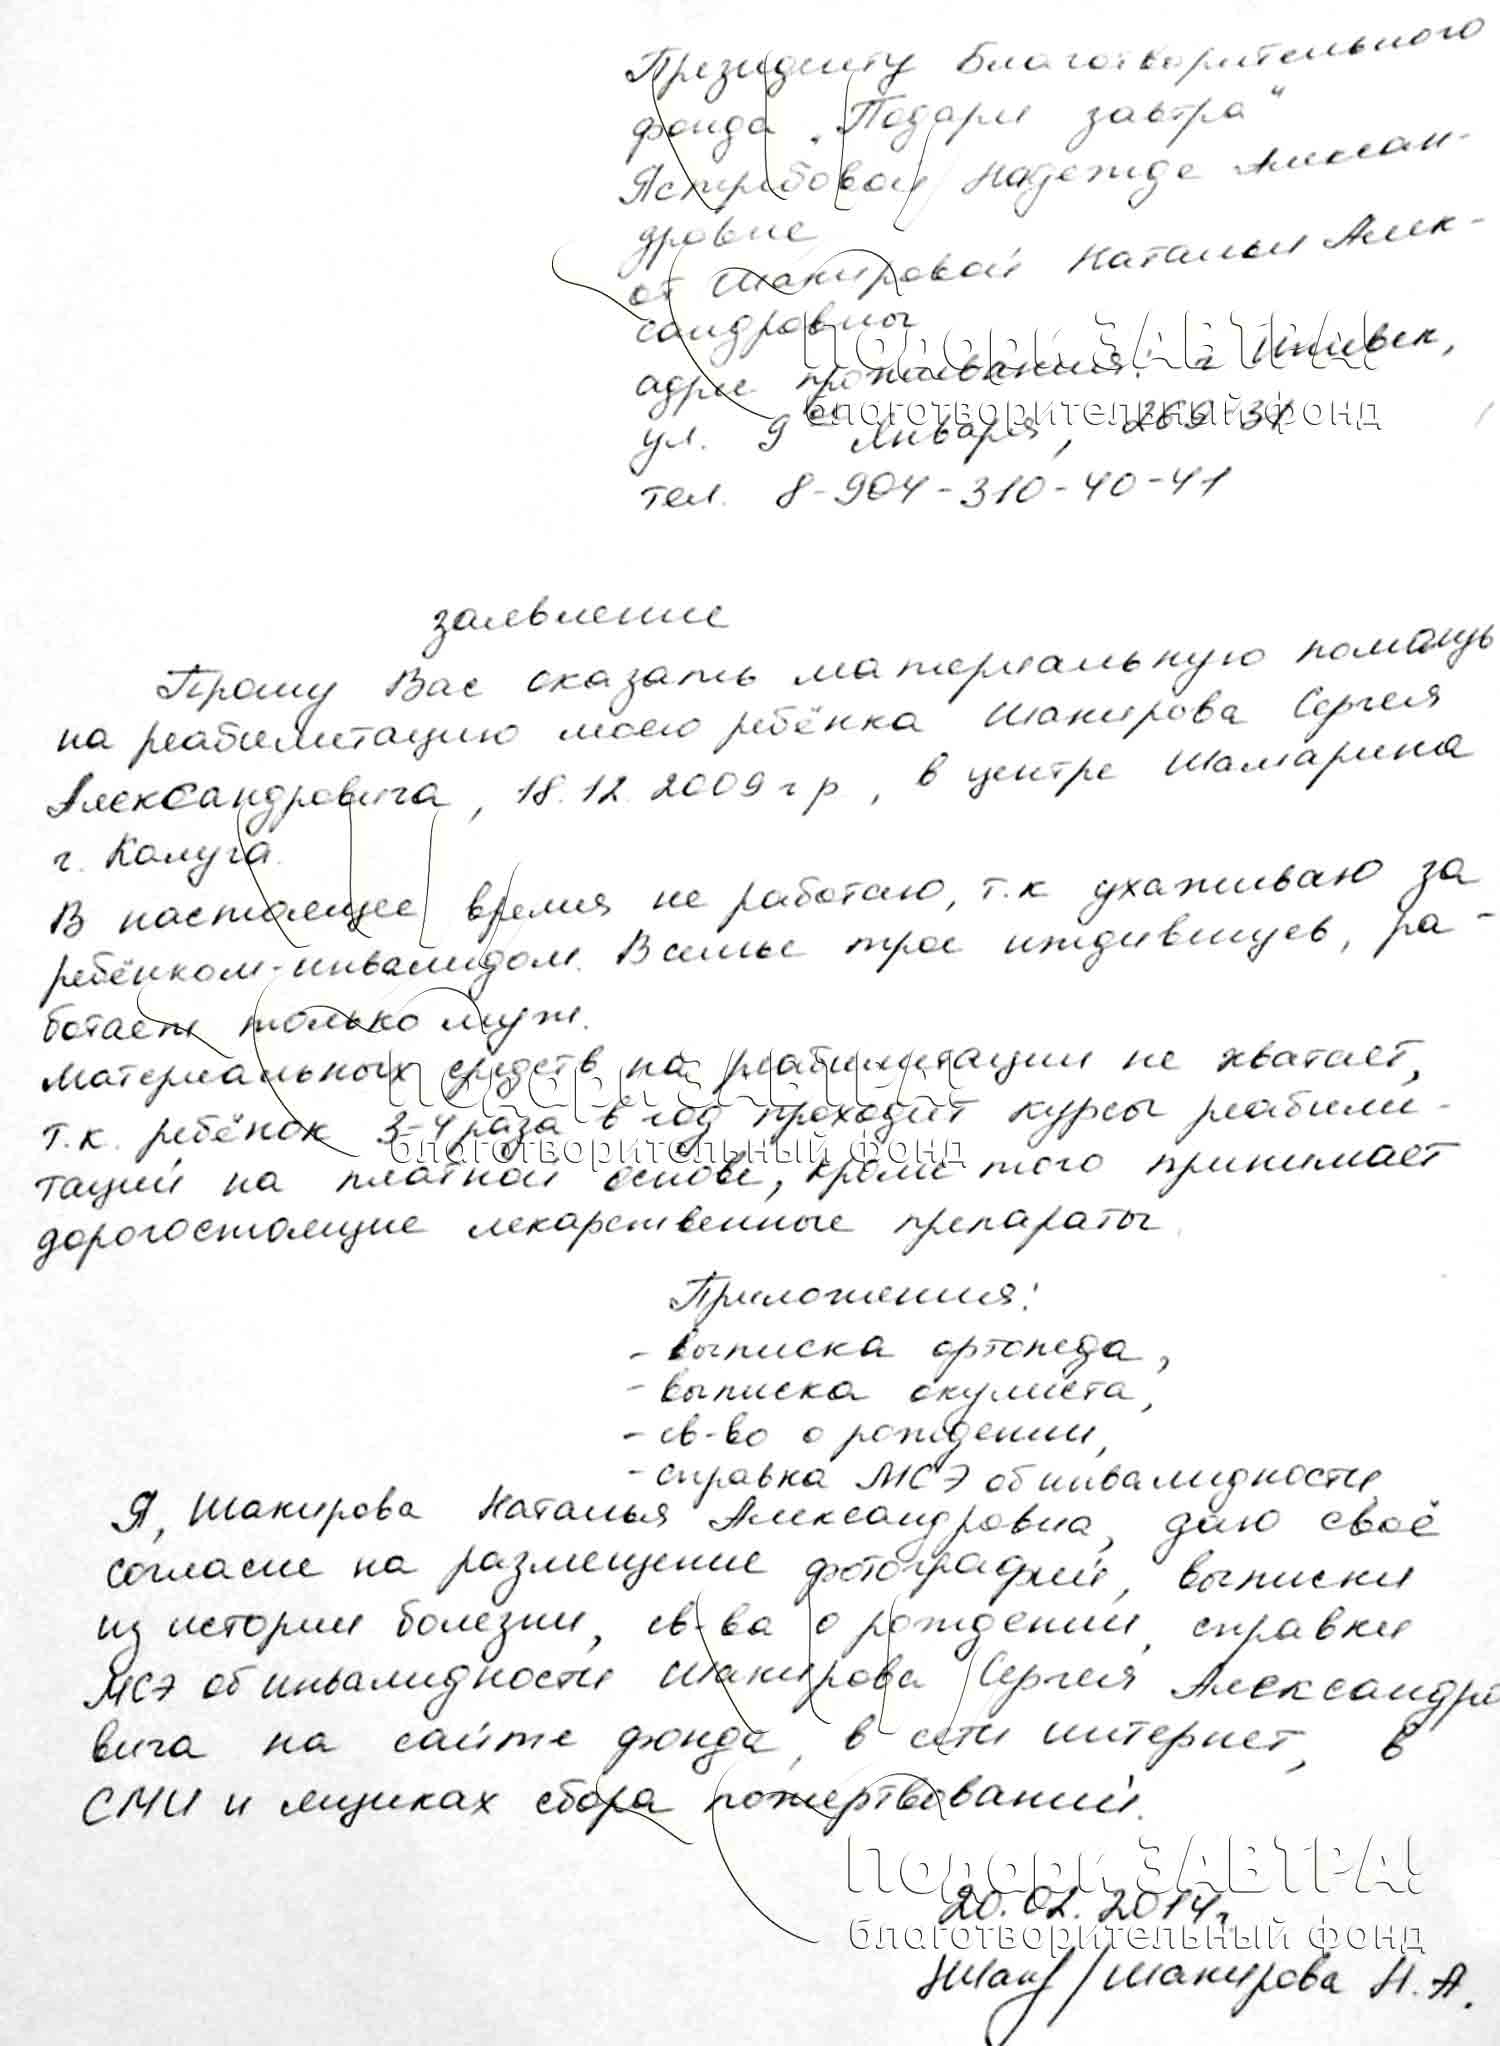 Президенту Благотворительного
фонда „Подари завтра“
Ястребовой Надежде Алексан-
дровне
от Шакировой Натальи Алек-
сандровны
Подари ЗАВТРА!
адрес проживания: г Ижевск,
благотворительный фонд
ул. 9ое Января, 269-31
тел. 8-904-310-40-41
заявление
Прошу Вас оказать материальную помощь
на реабилитацию моего ребёнка Шакирова Сергея
Александровича, 18.12.2009 г р, в центре Шамарина
г. Калуга.
В настоящее время не работаю, т.к ухаживаю за
ребёнком-инвалидом. В семье трое иждивенцев, ра-
ботает только муж.
Материальных средств на реабилитации не хватает,
Подари ЗАВТРА!
т.к. ребёнок 3-4 раза в год проходит курсы реабили-
благотворительный фонд
таций на платной основе, кроме того принимает
дорогостоящие лекарственные препараты.
Приложения:
- выписка ортопеда,
- выписка окулиста,
- св-во о рождении,
- справка МСЭ об инвалидности
Я, Шакирова Наталья Александровна, даю своё
согласие на размещение фотографий, выписки
из истории болезни, св-ва о рождении, справки
МСЭ об инвалидности Шакирова Сергея Александро
вича на сайте фонда, в сети интернет, в
СМИ и ящиках сбора пожертвований.
Подари ЗАВТРА!
20.02.2014г.
благотворительный фонд
/Шакирова Н.А.